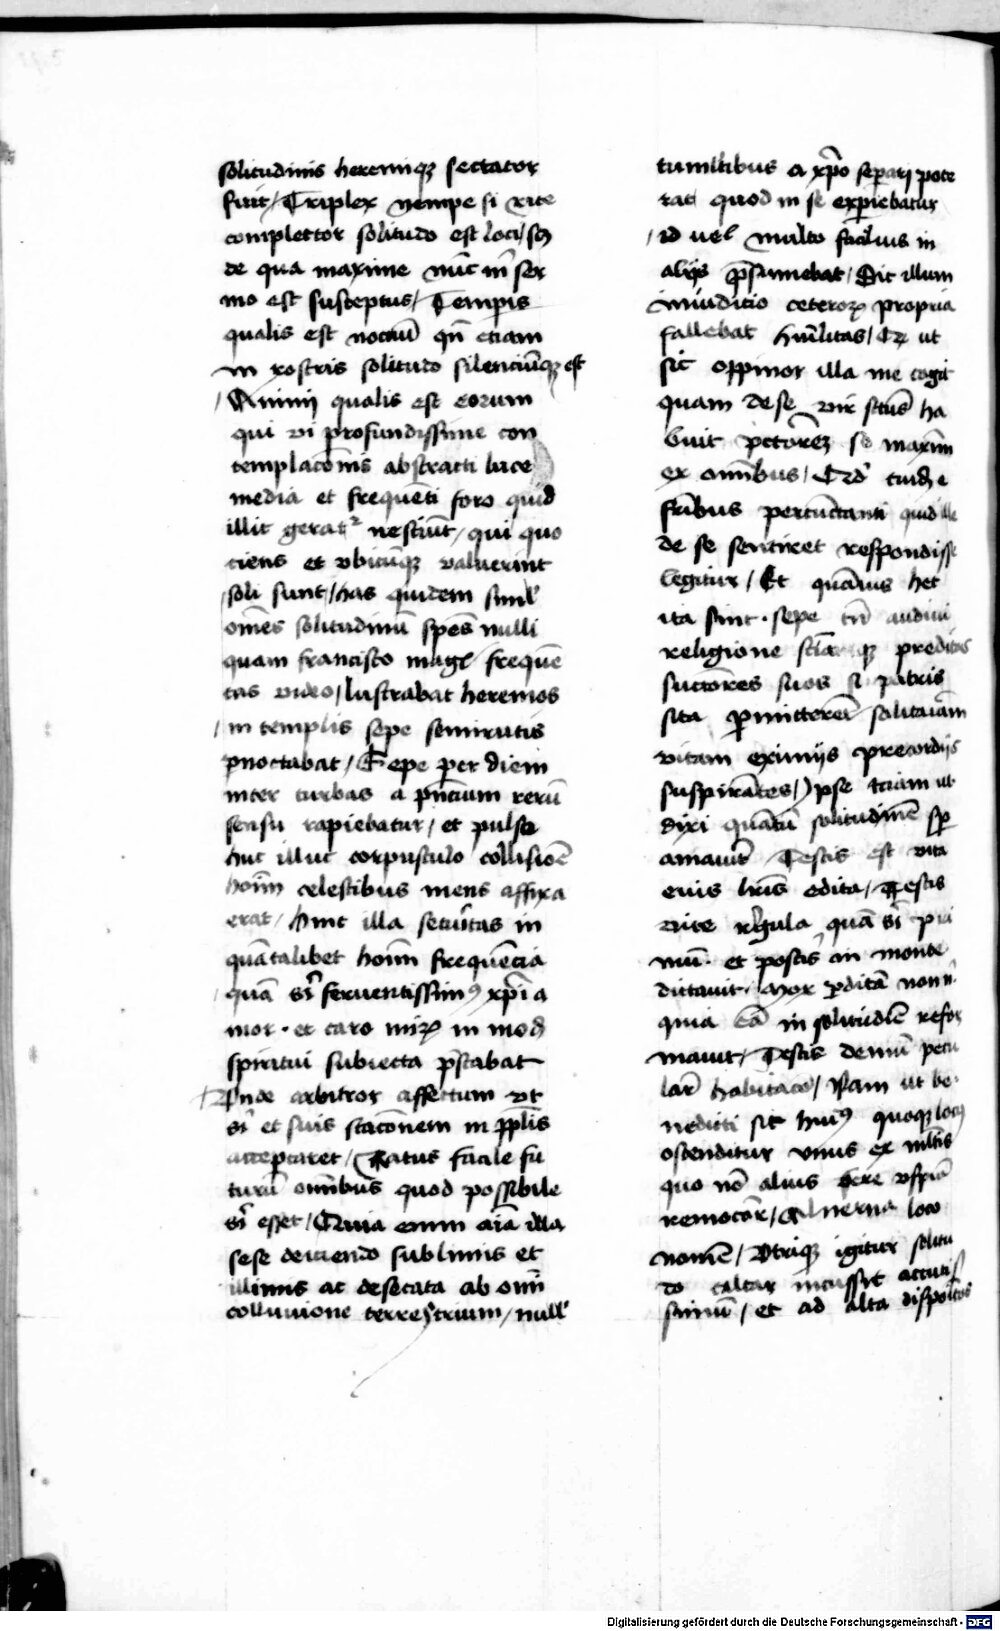 solitudinis heremiqꝫ sectator
fuit / Triplex nempe si rite
complector solitudo est loci / scꝫ
de qua maxime nūc m̄ ser
mo est susceptus / Temꝑis
qualis est noctiū qn̄ etiam
in rostris solitudo silenciūqꝫ est
/ Animj qualis est eorum
qui vi profundissime con
templacōnis abstracti luce
media et frequēti foro quid
illic geratᷣ nesciūt / qui quo
ciens et vbicūqꝫ valuerint
/ soli sunt / has quidem siml̕
om̄es solitudinū spēs nulli
quam francisco mag̕ frequē
tas video / lustrabat heremos
/ in templis sepe semirutis
ꝓnoctabat / Sepe per diem
inter turbas a p̄ncium rerū
sensu rapiebatur / et pulso
huc illuc corpusculo collisiōe
hoīm celestibus mens affixa
erat / hinc illa secūitas in
quātalibet hoīm frequēcia
quā s̄i feruentissimꝰ xp̄i a
mor · et caro miꝝ in mod̄
spiritui subiecta p̄stabat
Vnde arbitror affectum vt
s̄i et suis stacōnem in ꝓpl̄is
acceptaret / Ratus facile fu
turū om̄ibus quod possibile
s̄i esset / Quia enim aīa illa
sese deiciendo sublimis et
illimis ac desecata ab om̄i
colluuione terrestrium / null̕
tumltibus a xp̄o seꝑari pote
rat quod in se exꝑiebatur
/ id uel multo facilius in
alijs p̄sumebat / Sic illum
in iudicio ceteroꝝ propria
fallebat hūilitas / Et ut
sic oppinor illa me cogit
quam de se vir sctūs ha
buit pctōreꝫ se maxīm
ex om̄ibus / Qd̕ cuidā
fr̄ibus percūctanti quid ille
de se sentiret respondisse
legitur / Et quāuis hec
ita sint · sepe tn̄ audiui
religione sciāqꝫ preditos
suctōres suos si patris
sita ꝑmitterēt solitaiām
vitam eximijs precordijs
suspirātes / Ipse tciam ut
dixi quātū solitudinē sꝑ
amauit Testis est vita
euis lr̄is edita / Testis
vite r̄gula quā s̄i pri
mū · et postīs in monte
dictauit · mox ꝑditā non n̄
quia eā in solitudīe refor
mauit / Testis demū pecu
lar̄ habitacō / Nam ut be
nedicti sit huiꝰ quoqꝫ locꝰ
ostenditur vnus ex mltis
quo nō alius fere vspiā
remocōr / Aluerna loco
nomen / Vtriqꝫ igitur solitu
do calcar incussit acctuis
simū / et ad alta dispōitos